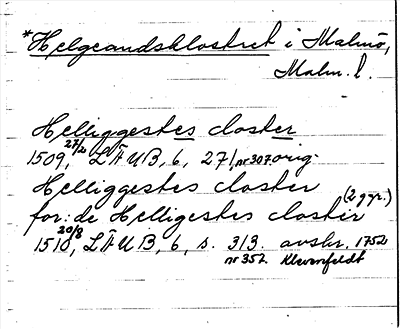 *Helgeandsklostret i Malmö,
Malm. l.
Helliggestes closter
1509 27/2, LÄUB, 6, 271, nr 307 orig.
Helliggestes closter
for: de Helligestes closter (2 ggr.)
1510 20/8, LÄUB, 6, s. 313. avskr. 1752
nr 352 Klevenfeldt